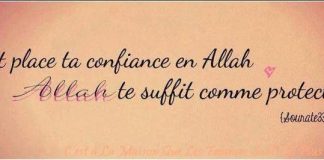 t place ta confiance en Allah
Allah te suffit comme protec
{Sourate33